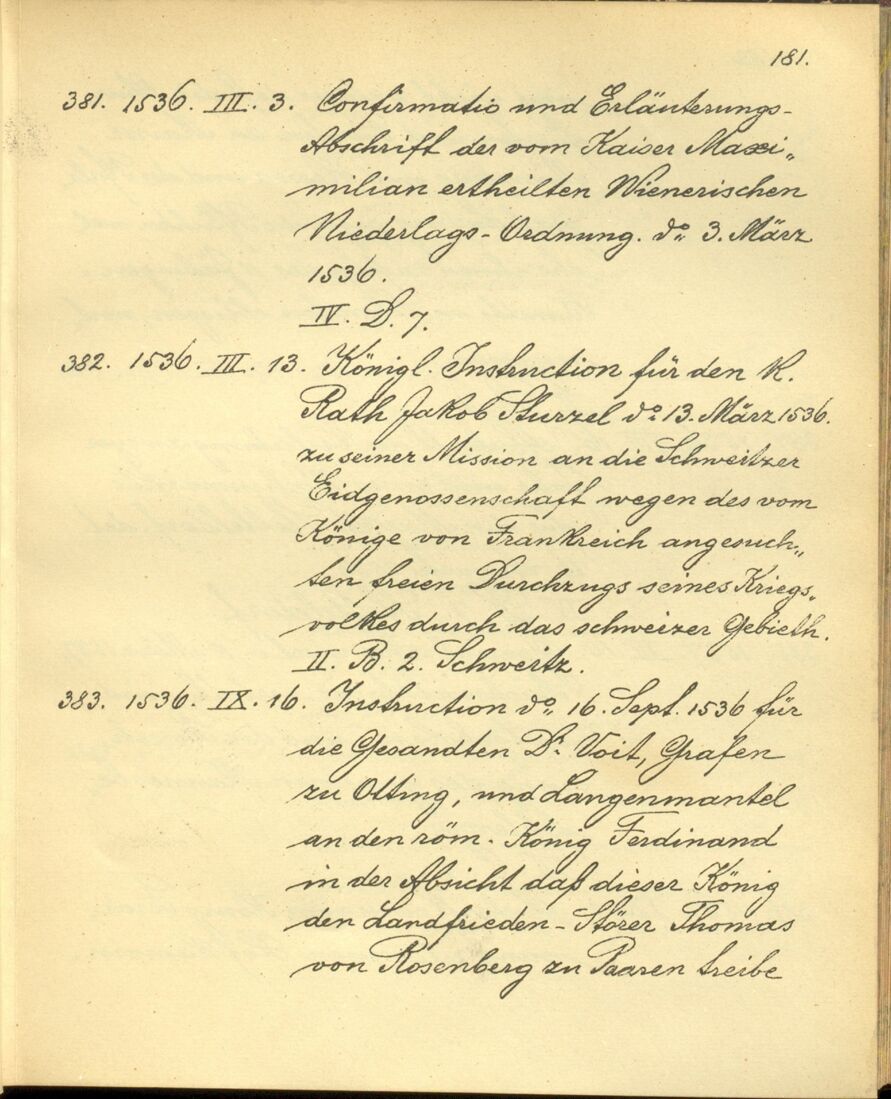 181.
381. 1536. III. 3. Confirmatio und Erläuterungs-
Abschrift der vom Kaiser Maxi„
milian ertheilten Wienerischen
Niederlags-Ordnung. do 3. März
1536.
IV. D. 7.
382. 1536. III. 13. Königl. Instruction für den K.
Rath Jakob Sturzel do 13. März 1536.
zu seiner Mission an die Schweitzer
Eidgenossenschaft wegen des vom
Könige von Frankreich angesuch„
ten freien Durchzugs seines Kriegs„
volkes durch das schweizer Gebieth.
II. B. 2. Schweitz.
383. 1536. IX. 16. Instruction do 16. Sept. 1536 für
die Gesandten Dr. Voit, Grafen
zu Otting, und Langenmantel
an den röm. König Ferdinand
in der Absicht daß dieser König
den Landfrieden-Störer Thomas
von Rosenberg zu Paaren treibe